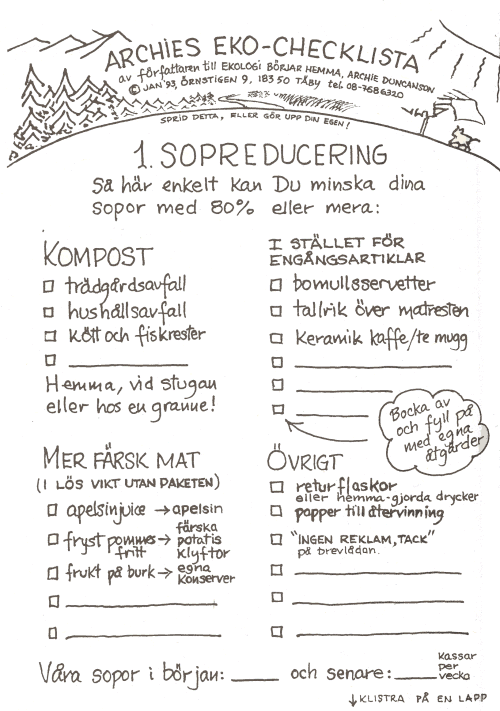 ARCHIES EKO-CHECKLISTA
av författaren till EKOLOGI BÖRJAR HEMMA, ARCHIE DUNCANSON
© JAN '93, ÖRNSTIGEN 9, 183 50 TÄBY tel. 08-7686320
SPRID DETTA, ELLER GÖR UPP DIN EGEN!
1. SOPREDUCERING
Så här enkelt kan Du minska dina
sopor med 80% eller mera:
KOMPOST
trädgårdsavfall
hushållsavfall
kött och fiskrester
Hemma, vid stugan
eller hos en granne!
I STÄLLET FÖR
ENGÅNGSARTIKLAR
bomullsservetter
tallrik över matresten
keramik kaffe/te mugg
Bocka av
och fyll på
med egna
åtgärder
MER FÄRSK MAT
(I LÖS VIKT UTAN PAKETEN)
apelsinjuice → apelsin
fryst pommes fritt → färska potatis klyftor
frukt på burk → egna konserver
ÖVRIGT
returflaskor
eller hemma-gjorda drycker
papper till återvinning
"INGEN REKLAM, TACK"
på brevlådan.
Våra sopor i början: _____ och senare: _____ kassar per vecka
↓ KLISTRA PÅ EN LAPP